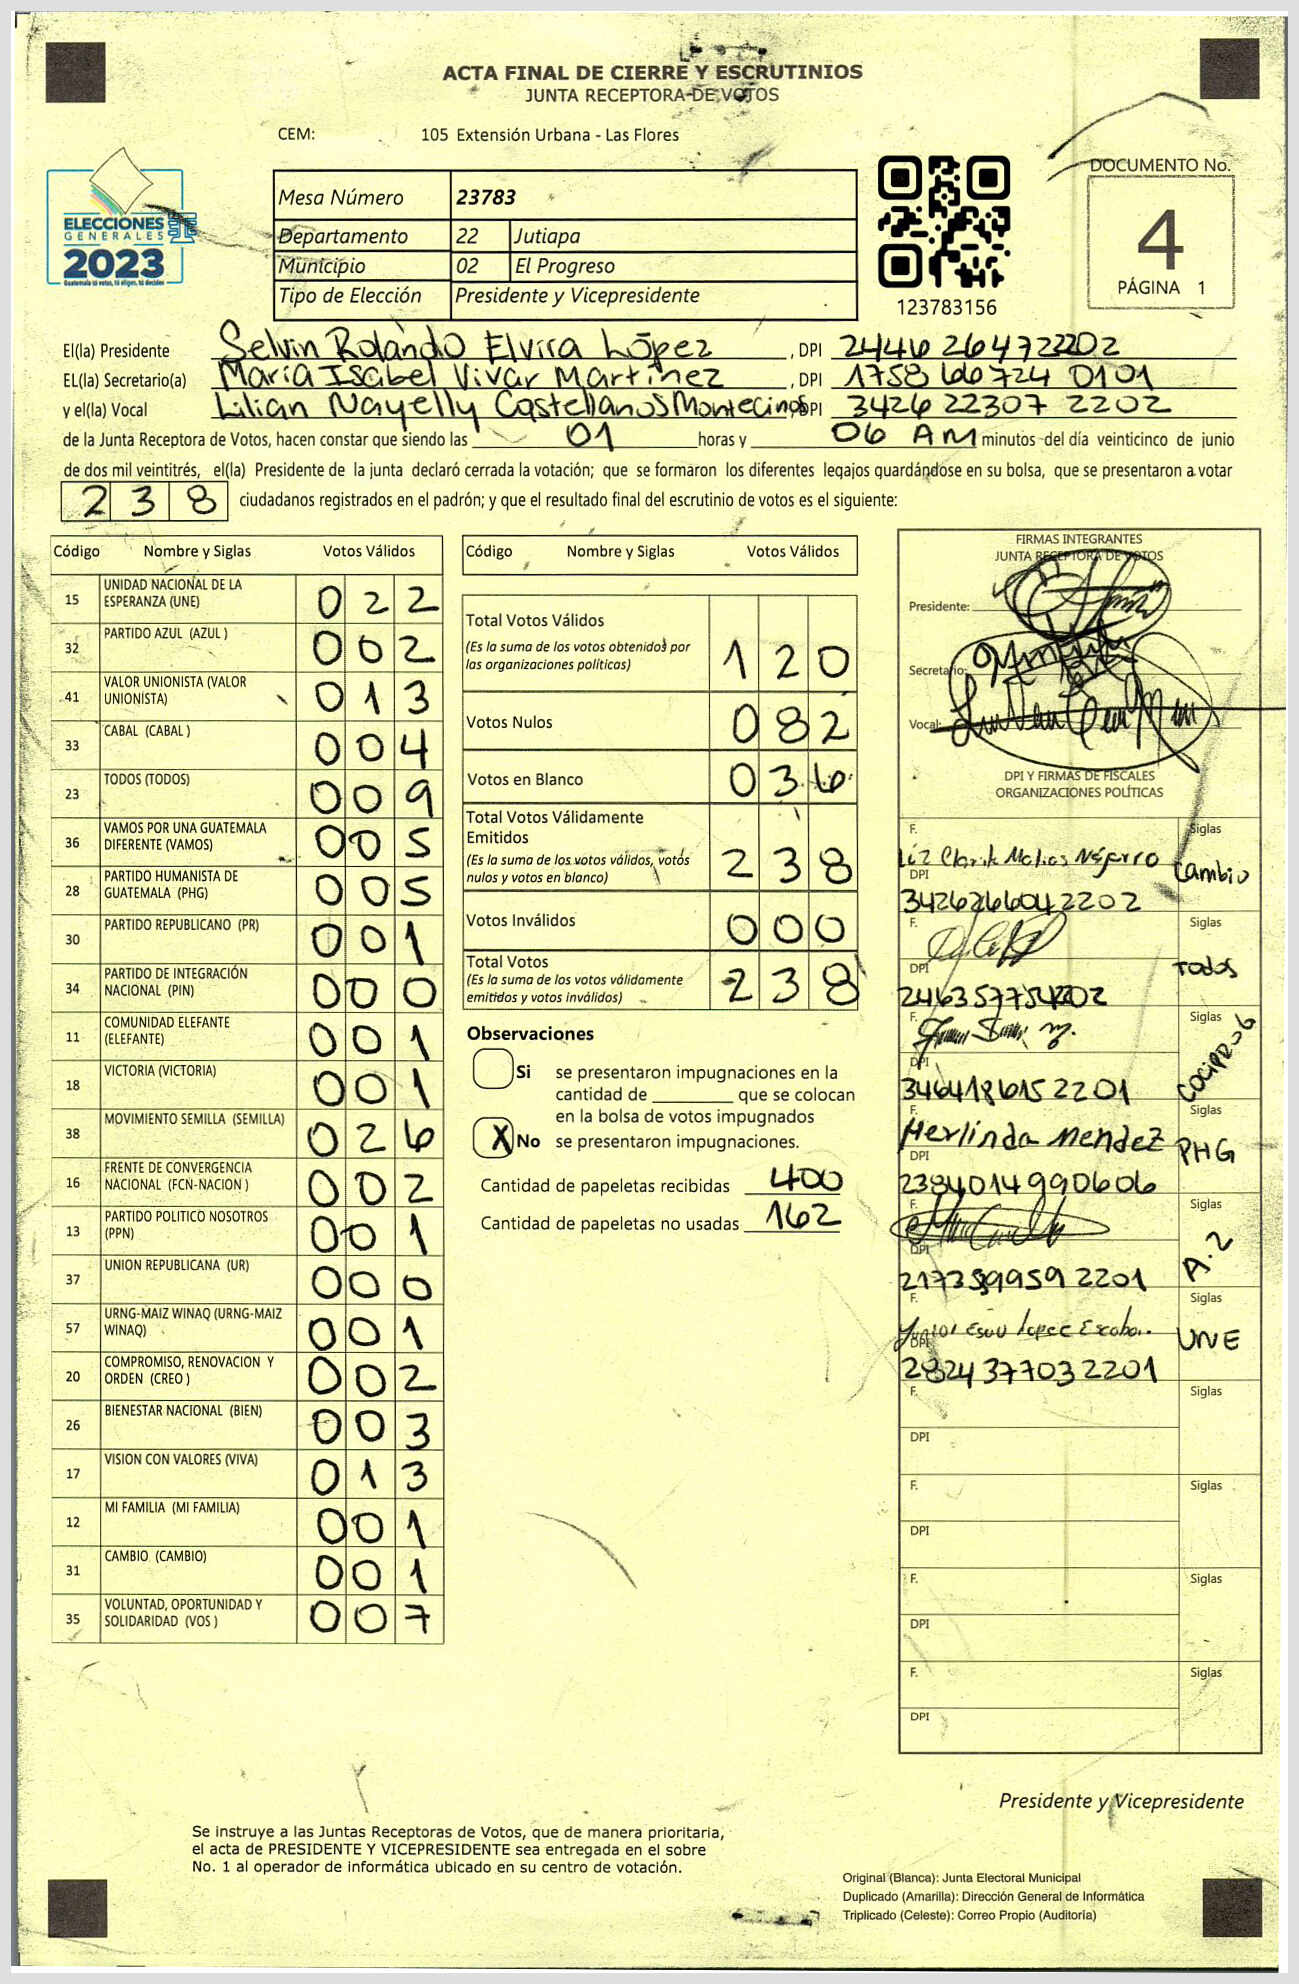 ACTA FINAL DE CIERRE Y ESCRUTINIOS
JUNTA RECEPTORA DE VOTOS
CEM: 105 Extensión Urbana - Las Flores
ELECCIONES
GENERALES
2023
Guatemala tú votas, tú eliges, tú decides
Mesa Número 23783
Departamento 22 Jutiapa
Municipio 02 El Progreso
Tipo de Elección Presidente y Vicepresidente
123783156
DOCUMENTO No.
4
PÁGINA 1
El(la) Presidente Selvin Rolando Elvira López , DPI 2446 26472202
EL(la) Secretario(a) María Isabel Vivar Martínez , DPI 1758 66724 0101
y el(la) Vocal Lilian Nayelly Castellanos Montecinos, DPI 3426 22307 2202
de la Junta Receptora de Votos, hacen constar que siendo las 01 horas y 06 AM minutos del día veinticinco de junio
de dos mil veintitrés, el(la) Presidente de la junta declaró cerrada la votación; que se formaron los diferentes legajos guardándose en su bolsa, que se presentaron a votar
238 ciudadanos registrados en el padrón; y que el resultado final del escrutinio de votos es el siguiente:
Código Nombre y Siglas Votos Válidos
15 UNIDAD NACIONAL DE LA ESPERANZA (UNE) 022
32 PARTIDO AZUL (AZUL ) 002
41 VALOR UNIONISTA (VALOR UNIONISTA) 013
33 CABAL (CABAL ) 004
23 TODOS (TODOS) 009
36 VAMOS POR UNA GUATEMALA DIFERENTE (VAMOS) 005
28 PARTIDO HUMANISTA DE GUATEMALA (PHG) 005
30 PARTIDO REPUBLICANO (PR) 001
34 PARTIDO DE INTEGRACIÓN NACIONAL (PIN) 000
11 COMUNIDAD ELEFANTE (ELEFANTE) 001
18 VICTORIA (VICTORIA) 001
38 MOVIMIENTO SEMILLA (SEMILLA) 026
16 FRENTE DE CONVERGENCIA NACIONAL (FCN-NACION ) 002
13 PARTIDO POLITICO NOSOTROS (PPN) 001
37 UNION REPUBLICANA (UR) 000
57 URNG-MAIZ WINAQ (URNG-MAIZ WINAQ) 001
20 COMPROMISO, RENOVACION Y ORDEN (CREO ) 002
26 BIENESTAR NACIONAL (BIEN) 003
17 VISION CON VALORES (VIVA) 013
12 MI FAMILIA (MI FAMILIA) 001
31 CAMBIO (CAMBIO) 001
35 VOLUNTAD, OPORTUNIDAD Y SOLIDARIDAD (VOS ) 007
Código Nombre y Siglas Votos Válidos
Total Votos Válidos 120
(Es la suma de los votos obtenidos por
las organizaciones políticas)
Votos Nulos 082
Votos en Blanco 036
Total Votos Válidamente
Emitidos 238
(Es la suma de los votos válidos, votos
nulos y votos en blanco)
Votos Inválidos 000
Total Votos 238
(Es la suma de los votos válidamente
emitidos y votos inválidos)
Observaciones
Si se presentaron impugnaciones en la
cantidad de ________ que se colocan
en la bolsa de votos impugnados
X No se presentaron impugnaciones.
Cantidad de papeletas recibidas 400
Cantidad de papeletas no usadas 162
FIRMAS INTEGRANTES
JUNTA RECEPTORA DE VOTOS
Presidente:
Secretario:
Vocal:
DPI Y FIRMAS DE FISCALES
ORGANIZACIONES POLÍTICAS
F. Siglas
Cambio
DPI
3426266042202
F. Siglas
Todos
DPI
F. Siglas
DPI
3464186152201
F. Siglas
Herlinda Mendez PHG
DPI
2384014990606
F. Siglas
A.2
DPI
2173599592201
F. Siglas
Junior Esau Lopez Escobar UNE
DPI
2824377032201
F. Siglas
DPI
F. Siglas
DPI
F. Siglas
DPI
F. Siglas
DPI
Presidente y Vicepresidente
Se instruye a las Juntas Receptoras de Votos, que de manera prioritaria,
el acta de PRESIDENTE Y VICEPRESIDENTE sea entregada en el sobre
No. 1 al operador de informática ubicado en su centro de votación.
Original (Blanca): Junta Electoral Municipal
Duplicado (Amarilla): Dirección General de Informática
Triplicado (Celeste): Correo Propio (Auditoría)